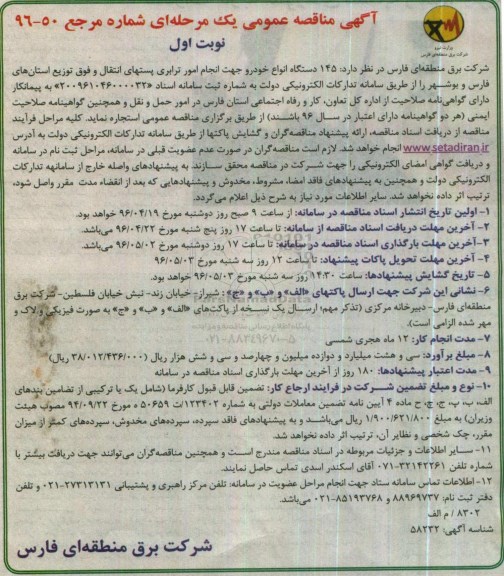 آگهی مناقصه عمومی یک مرحله‌ای شماره مرجع ۵۰-۹۶
نوبت اول
وزارت نیرو
شرکت برق منطقه‌ای فارس
شرکت برق منطقه‌ای فارس در نظر دارد: ۱۴۵ دستگاه انواع خودرو جهت انجام امور ترابری پستهای انتقال و فوق توزیع استان‌های
فارس و بوشهر را از طریق سامانه تدارکات الکترونیکی دولت به شماره ثبت سامانه اسناد «۲۰۰۹۶۱۰۴۶۰۰۰۰۳۲» به پیمانکار
دارای گواهی‌نامه صلاحیت از اداره کل تعاون، کار و رفاه اجتماعی استان فارس در امور حمل و نقل و همچنین گواهینامه صلاحیت
ایمنی (هر دو گواهینامه دارای اعتبار در سال ۹۶ باشند) از طریق برگزاری مناقصه عمومی استجاره نماید. کلیه مراحل فرآیند
مناقصه از دریافت اسناد مناقصه، ارائه پیشنهاد مناقصه‌گران و گشایش پاکتها از طریق سامانه تدارکات الکترونیکی دولت به آدرس
www.setadiran.ir انجام خواهد شد. لازم است مناقصه‌گران در صورت عدم عضویت قبلی در سامانه، مراحل ثبت نام در سامانه
و دریافت گواهی امضای الکترونیکی را جهت شرکت در مناقصه محقق سازند. به پیشنهادهای واصله خارج از سامانهه تدارکات
الکترونیکی دولت و همچنین به پیشنهادهای فاقد امضا، مشروط، مخدوش و پیشنهادهایی که بعد از انقضاء مدت مقرر واصل شود،
ترتیب اثر داده نخواهد شد. سایر اطلاعات مورد نیاز به شرح ذیل اعلام می‌گردد.
۱- اولین تاریخ انتشار اسناد مناقصه در سامانه: از ساعت ۹ صبح روز دوشنبه مورخ ۹۶/۰۴/۱۹ خواهد بود.
۲- آخرین مهلت دریافت اسناد مناقصه از سامانه: تا ساعت ۱۷ روز پنج شنبه مورخ ۹۶/۰۴/۲۲ می‌باشد.
۳- آخرین مهلت بارگذاری اسناد مناقصه در سامانه: تا ساعت ۱۷ روز دوشنبه مورخ ۹۶/۰۵/۰۲ می‌باشد.
۴- آخرین مهلت تحویل پاکات پیشنهاد: تا ساعت ۱۲ روز سه شنبه مورخ ۹۶/۰۵/۰۳
۵- تاریخ گشایش پیشنهادها: ساعت ۱۴:۳۰ روز سه شنبه مورخ ۹۶/۰۵/۰۳ خواهد بود.
۶- نشانی این شرکت جهت ارسال پاکتهای «الف» و «ب» و «ج»: شیراز- خیابان زند- نبش خیابان فلسطین- شرکت برق
منطقه‌ای فارس- دبیرخانه مرکزی (تذکر مهم؛ ارسال یک نسخه از پاکت‌های «الف» و «ب» و «ج» به صورت فیزیکی و لاک و
مهر شده الزامی است).
۷- مدت انجام کار: ۱۲ ماه هجری شمسی
۸- مبلغ برآورد: سی و هشت میلیارد و دوازده میلیون و چهارصد و سی و شش هزار ریال (۳۸/۰۱۲/۴۳۶/۰۰۰ ریال)
۹- مدت اعتبار پیشنهادها: ۱۸۰ روز از آخرین مهلت بارگذاری اسناد مناقصه در سامانه
۱۰- نوع و مبلغ تضمین شرکت در فرایند ارجاع کار: تضمین قابل قبول کارفرما (شامل یک یا ترکیبی از تضامین بندهای
الف، ب، پ، ج، چ، ح ماده ۴ آیین نامه تضمین معاملات دولتی به شماره ۱۲۳۴۰۲/ت ۵۰۶۵۹ ه مورخ ۹۴/۰۹/۲۲ مصوب هیئت
وزیران) به مبلغ ۱/۹۰۰/۶۲۱/۸۰۰ ریال می‌باشد و به پیشنهادهای فاقد سپرده، سپرده‌های مخدوش، سپرده‌های کمتر از میزان
مقرر، چک شخصی و نظایر آن، ترتیب اثر داده نخواهد شد.
۱۱- سایر اطلاعات و جزئیات مربوطه در اسناد مناقصه مندرج است و همچنین مناقصه‌گران می‌توانند جهت دریافت بیشتر با
شماره تلفن ۳۲۱۴۲۲۶۱-۰۷۱ آقای اسکندر اسدی تماس حاصل نمایند.
۱۲- اطلاعات تماس سامانه ستاد جهت انجام مراحل عضویت در سامانه: تلفن مرکز راهبری و پشتیبانی ۲۷۳۱۳۱۳۱-۰۲۱ و تلفن
دفتر ثبت نام: ۸۸۹۶۹۷۳۷ و ۸۵۱۹۳۷۶۸-۰۲۱ می‌باشد.
۸۳۰۲ / م الف
شناسه آگهی: ۵۸۲۳۲
شرکت برق منطقه‌ای فارس